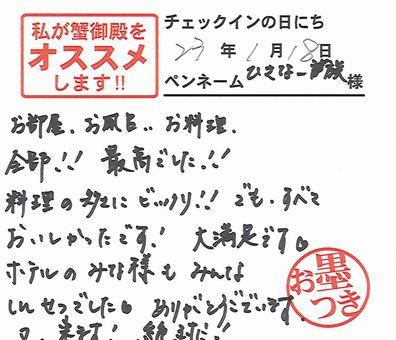 私が蟹御殿を
オススメ
します!!
チェックインの日にち
23年1月18日
ペンネーム ひさなー家族 様
お部屋、お風呂、お料理、
全部!! 最高でした!!
料理の多さにビックリ!! でも、すべて
おいしかったです! 大満足です。
ホテルのみな様もみんな
しんせつでした。ありがとうございます。
又、来ます! 絶対に!
お墨つき